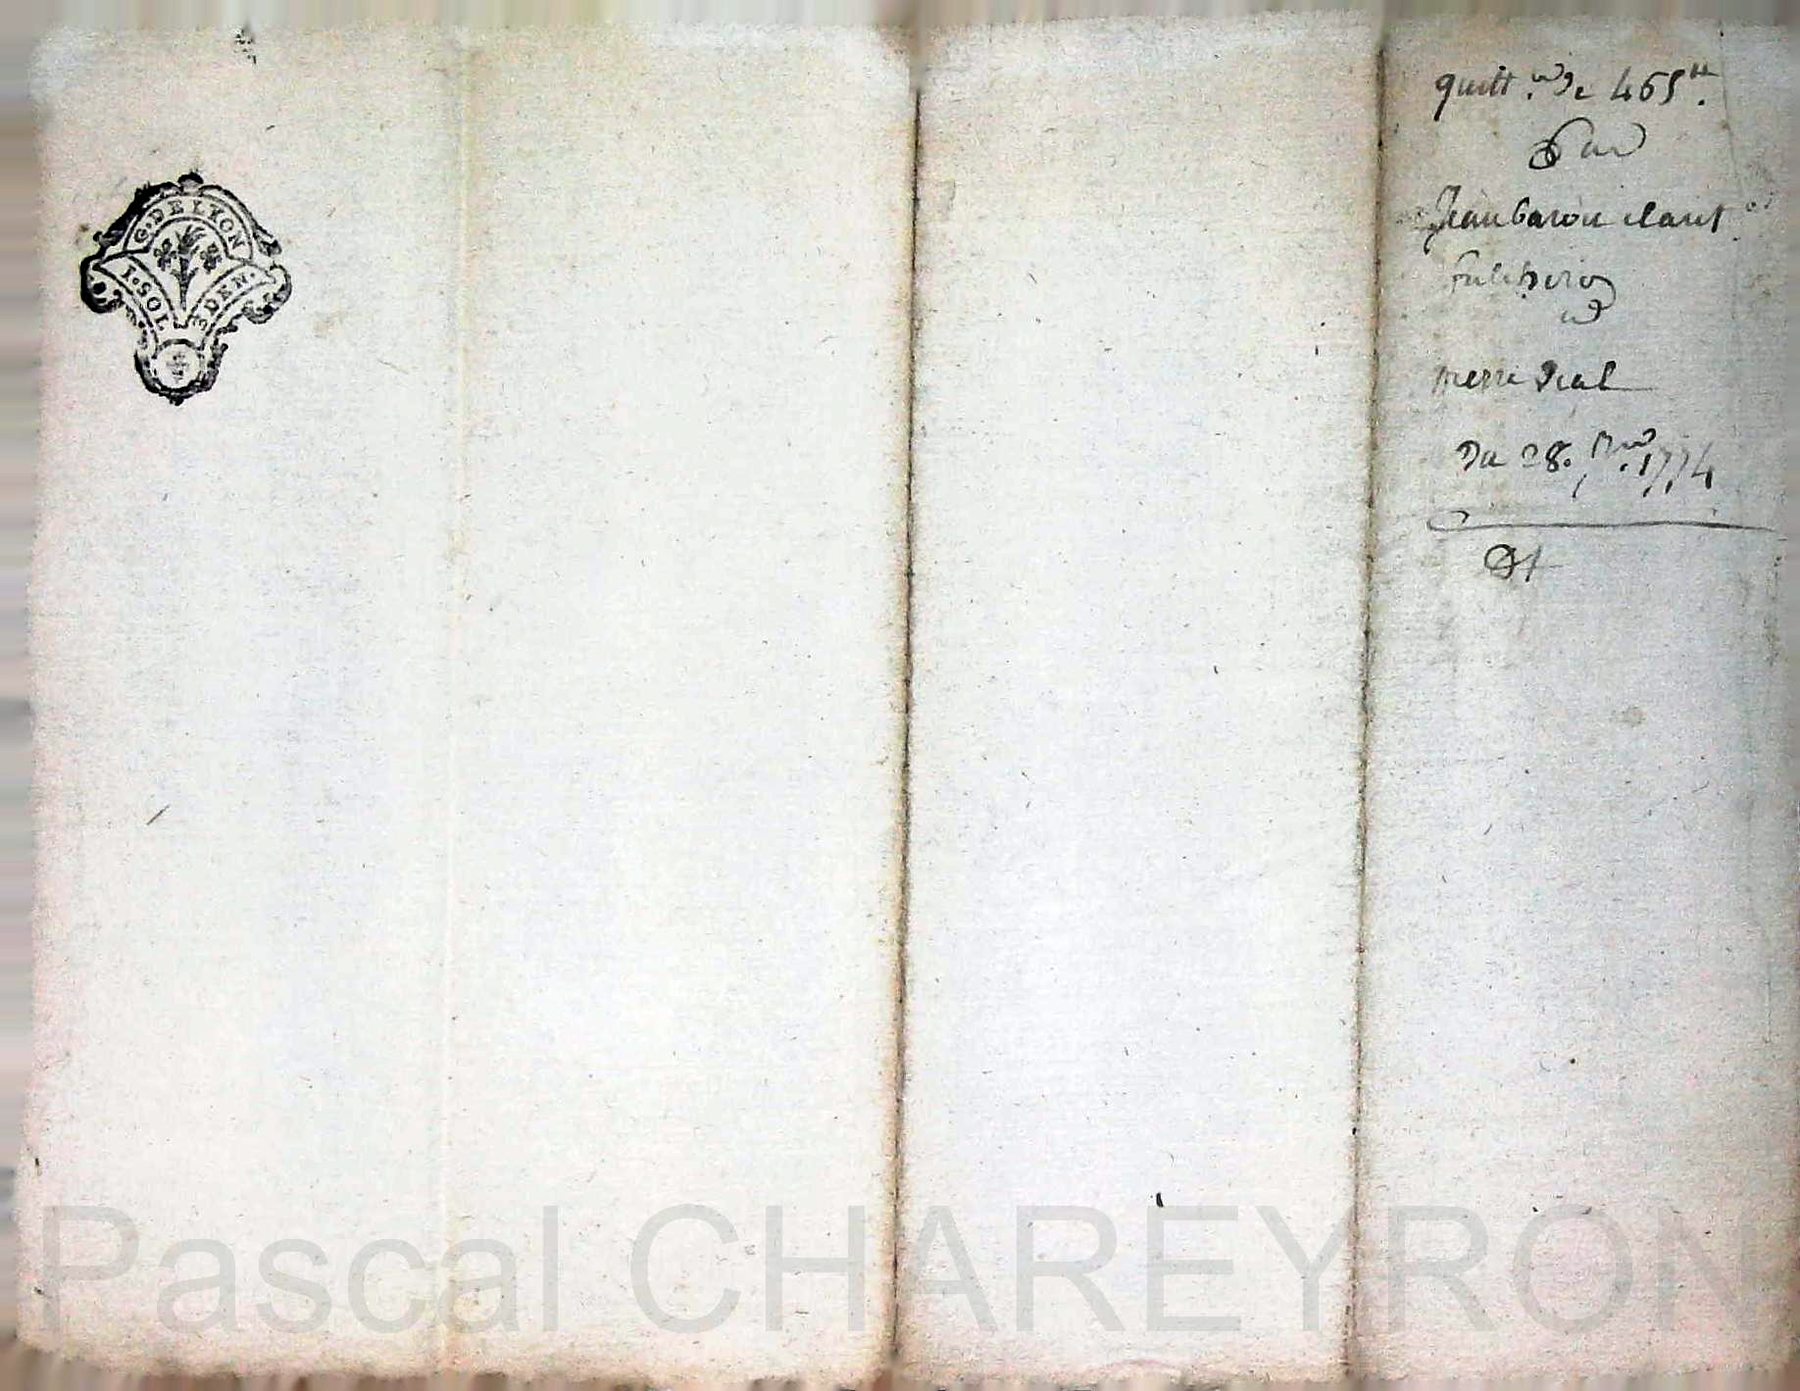 G. DE LYON
1. SOL DEN.
quitt.ce de 465 tt.
Par
Jean baron clani
fulchiron
a
pierre vial
Du 28. 1774
Pascal CHAREYRON